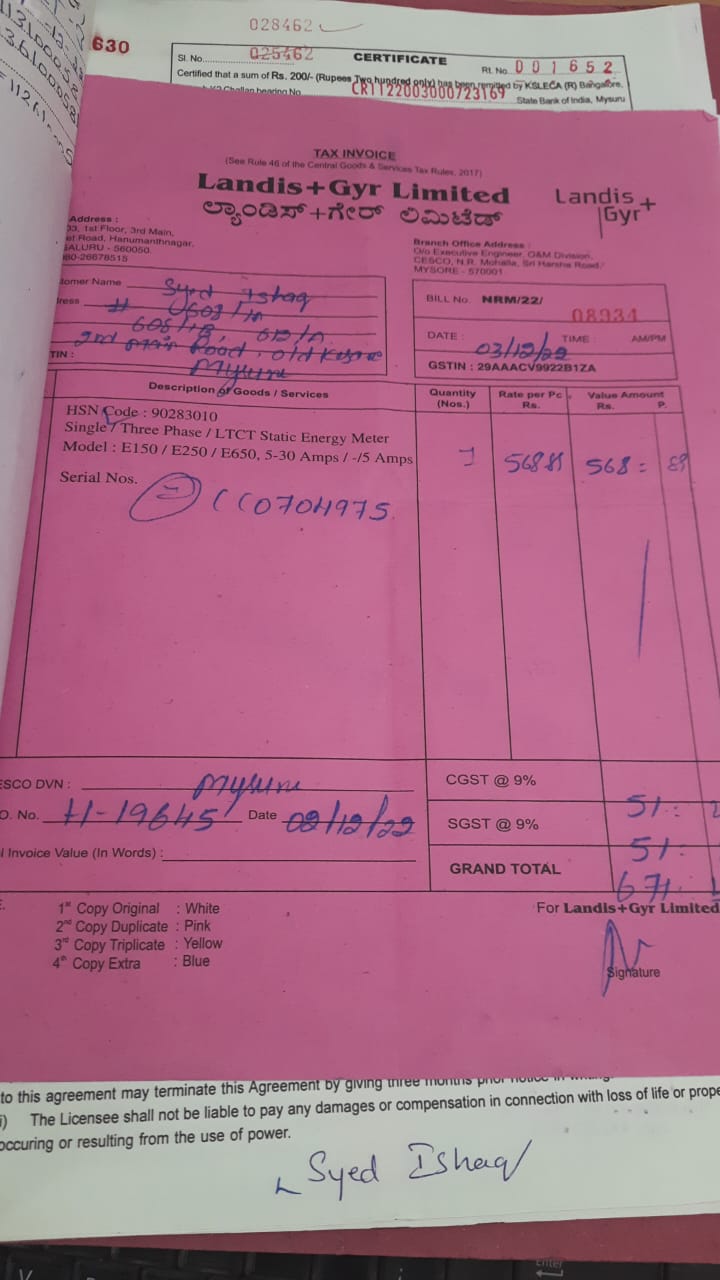 028462
630
Sl. No. 025462 CERTIFICATE Rt. No. 001652
Certified that a sum of Rs. 200/- (Rupees Two hundred only) has been remitted by KSLECA (R) Bangalore,
Challan bearing No. CR1122003000723169 State Bank of India, Mysuru
TAX INVOICE
(See Rule 46 of the Central Goods & Services Tax Rules, 2017)
Landis+Gyr Limited
ಲ್ಯಾಂಡಿಸ್+ಗೇರ್ ಲಿಮಿಟೆಡ್
Landis+
Gyr
Address :
1st Floor, 3rd Main,
Road, Hanumanthnagar,
ALURU - 560050.
080-26678515
Branch Office Address :
O/o Executive Engineer, O&M Division,
CESCO, N.R. Mohalla, Sri Harsha Road,
MYSORE - 570001
tomer Name Syed Ishaq
ress #
2nd main Road, Old
Mysuru
TIN :
BILL No. NRM/22/ 08934
DATE : 03/12/22 TIME : AM/PM
GSTIN : 29AAACV9922B1ZA
Description of Goods / Services Quantity (Nos.) Rate per Pc. Rs. Value Amount Rs. P.
HSN Code : 90283010
Single / Three Phase / LTCT Static Energy Meter
Model : E150 / E250 / E650, 5-30 Amps / -/5 Amps 1 568 568
Serial Nos.
CC0704975
ESCO DVN : Mysuru
O. No. H-19645 Date 02/12/22
l Invoice Value (In Words) :
CGST @ 9% 51
SGST @ 9% 51
GRAND TOTAL 671
1st Copy Original : White
2nd Copy Duplicate : Pink
3rd Copy Triplicate : Yellow
4th Copy Extra : Blue
For Landis+Gyr Limited
Signature
to this agreement may terminate this Agreement by giving three months prior notice in writing.
i) The Licensee shall not be liable to pay any damages or compensation in connection with loss of life or prope
occuring or resulting from the use of power.
Syed Ishaq
Enter